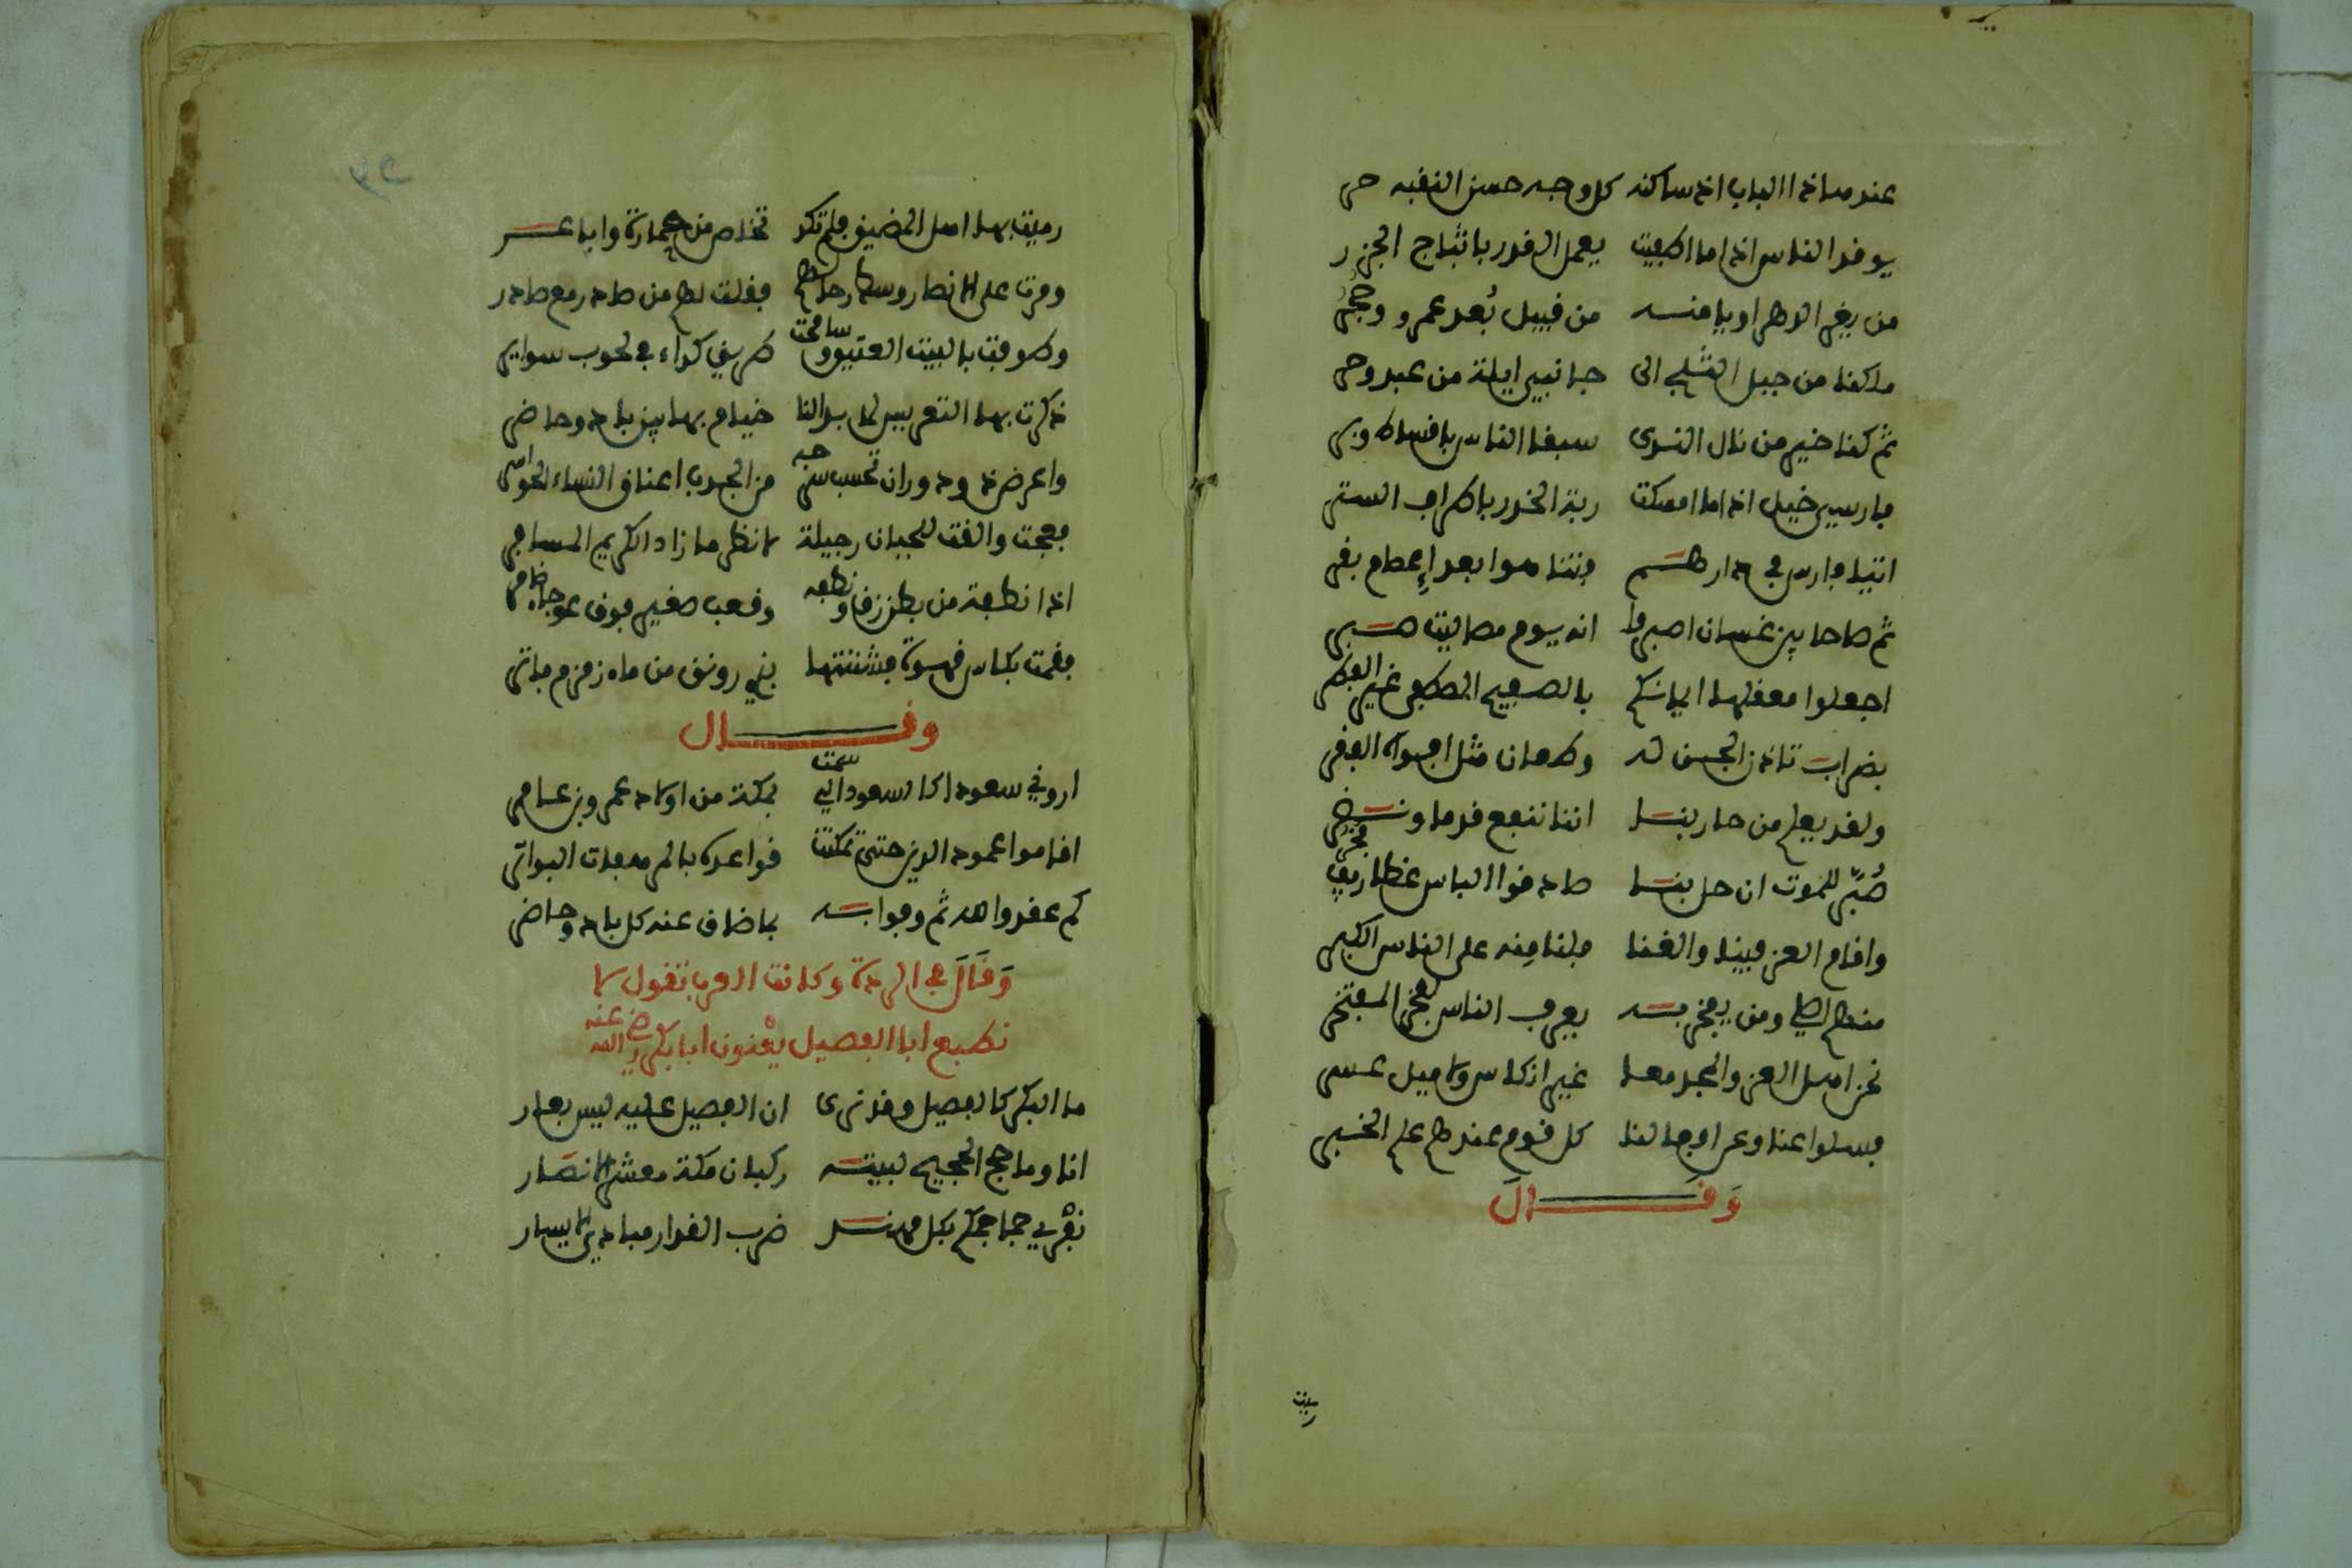 عند هذا الباب اذ ساكنه كل وجه حسن النقبه حر
يوقد الناس اذا ما اطفيت يعمل القدر باثباج الجزر
من يغر الدهر او يامنه من قبيل بُعد عمرو وحجر
ملكنا من جبل الثلج الى جانبي ايلة من عبد وحر
ثم كنا خير من نال الندى سبقا الناس باقساط وبر
فارسي خيل اذا ما امسكت ربة الخدر باطراف الستر
اتيا فارس في دارهم فتناهوا بعد إعصام بقر
ثم صاحا يين غسان اصبروا انه يوم مصاليت صبر
اجعلوا معقلها ايمانكم بالصفيح المصطفى غير الفطر
بضراب تاذن الجن له وطعان مثل افواه الفقر
ولقد يعلم من حاربنا اننا ننفع قدما ونضر
صُبّر للموت ان حل بنا صادقوا الباس غطاريف فخر
واقام العز فينا والغنا فلنا مِنه على الناس الكبر
منهم اصلي ومن يفخر به يعرف الناس لفخر المفتخر
نحن اهل العز والمجد معا غير انكاس ولا ميل عسر
فسلوا عنا وعن افعالنا كل قوم عندهم علم الخبر
وَقَالَ
رميت
٣٢
رميت بها اهل المضيق فلم تكد تخلص من حمارة واباعر
ومرت على الانصار وسط رحالهم فقلت لهم من صادر مع صادر
وطوفت بالبيت العتيق وسامحت طريق كداء في لحوب سوائر
ذكرت بها التعريس لما بدا لنا خيام بها بين باد وحاضر
واعرض ذو دوران تحسب سرحه من الجدب اعناق النساء الحواسر
فعجت والقت للجبان رجيلة لانظر ما زاد الكريم المسافر
اذا نطفة من بطن زق ونطفه وقعب صغير فوق عوجاء ضامر
فقمت بكاس قهوة فشننتها بذي رونق من ماء زمزم فاتر
وقال
اروني سعودا كالسعود التي سمت بمكة من اولاد عمرو بن عامر
اقاموا عمود الدين حتى تمكنت قواعده بالمرهفات البواتر
كم عقدوا لله ثم وفوا به بما ضاق عنه كل باد وحاضر
وَقَالَ في الردة وكانت العرب تقول لا
نطيع ابا الفصيل يعْنون ابا بكر رضي الله عنه
ما البكر كالفصيل وقد ترى ان الفصيل عليه ليس بعار
انا وما حج الحجيج لبيته ركبان مكة معشر الانصار
نفْري جماجمكم بكل مهند ضرب القدار مبادي الايسار